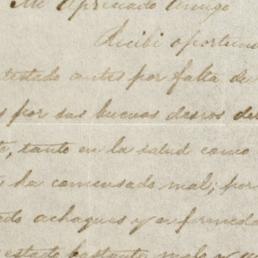 Mi Apreciado Amigo
Recibi oportuna
testado antes por falta de
s por sus buenos deseos del
te, tanto en la salud como
ha comensado mal; por
achaques y enfermeda
estado bastante malo y